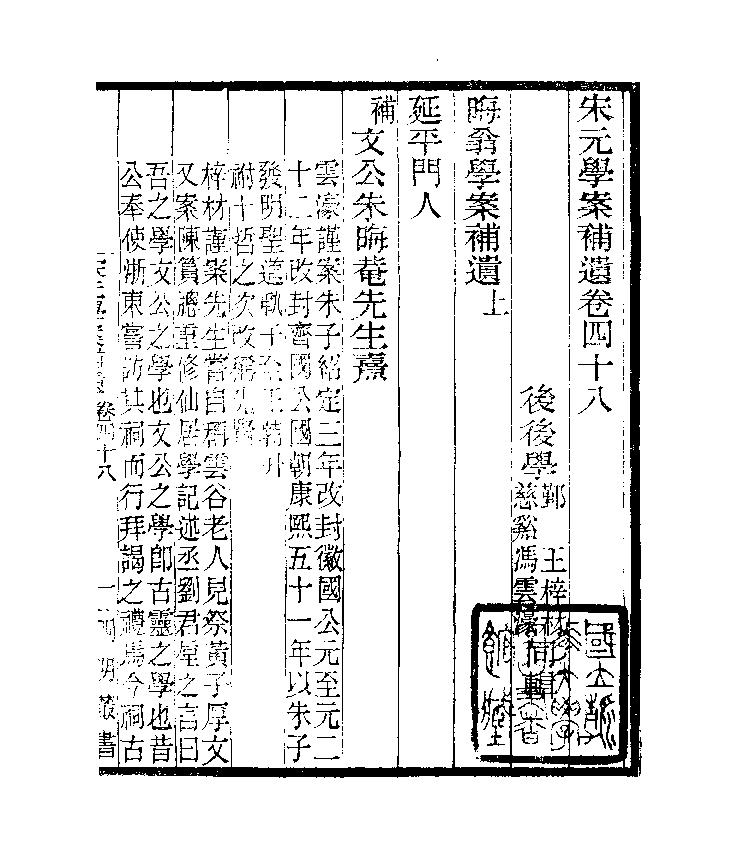 宋元學案補遺卷四十八
後學
鄞 王梓材
慈谿馮雲濠 同輯
晦翁學案補遺上
延平門人
補文公朱晦菴先生熹
雲濠謹案朱子紹定三年改封徽國公元至元二
十二年改封齊國公國朝康熙五十一年以朱子
發明聖道軼于
祔十哲之次改稱先賢
梓材謹案先生嘗自稱雲谷老人見祭黃子厚文
又案陳篔牕重修仙居學記述丞劉君之言曰
吾之學文公之學也文公之學卽古靈之學也昔
公奉使浙東嘗訪其祠而行拜謁之禮焉今祠古
卷四十八
一
四明叢書
國立